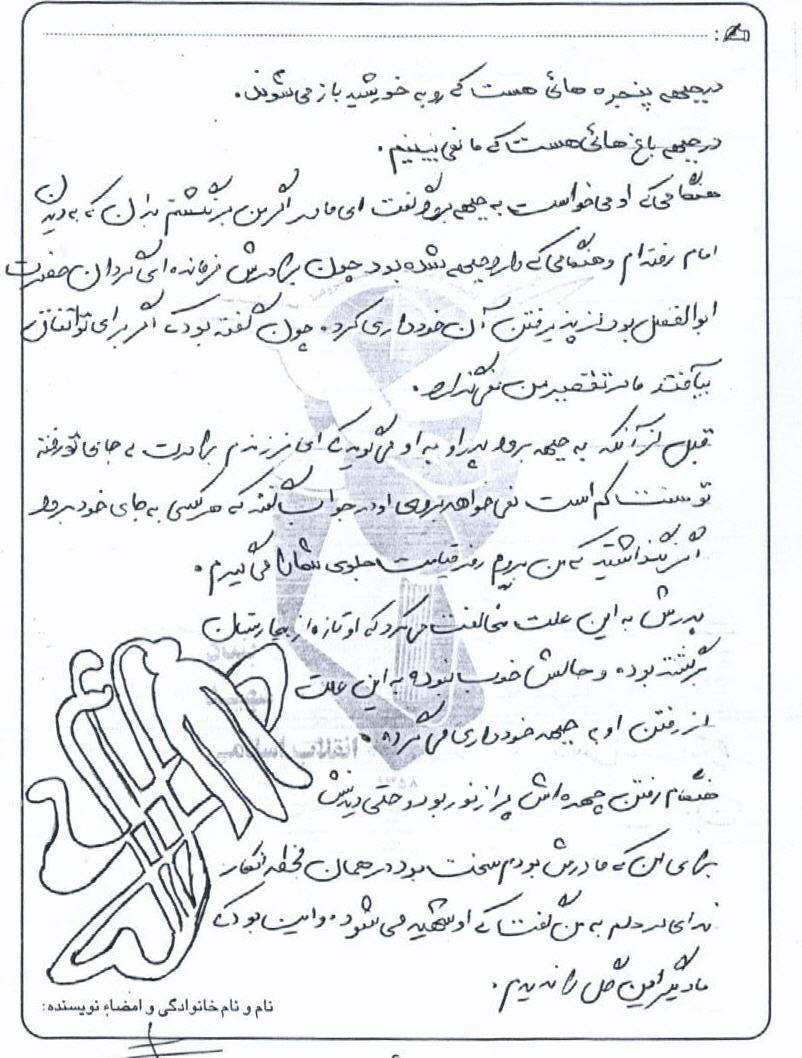 در جبهه پنجره هائی هست که رو به خورشید باز می شوند.
در جبهه باغ هائی هست که ما نمی بینیم.
هنگامی که او می خواست به جبهه برود گفت ای مادر اگر من برنگشتم بدان که به دیدن
امام رفته ام و هنگامی که وارد جبهه شده بود چون برادرش فرمانده ای گردان حضرت
ابوالفضل بود از پذیرفتن آن خودداری کرد. چون گفته بود که اگر برای تو اتفاقی
بیافتد مادر تقصیر من می گذارد.
قبل از آنکه به جبهه برود پدر او به او می گوید که ای فرزندم برادرت به جای تو رفته
تو سنت کم است نمی خواهد بروی او در جواب گفته که هر کسی به جای خود برود
اگر نگذاشتید که من بروم روز قیامت جلوی شما را می گیرم.
پدرش به این علت مخالفت می کرد که او تازه از بیمارستان
برگشته بوده و حالش خوب نبوده به این علت
از رفتن او به جبهه خودداری می کرده.
هنگام رفتن چهره اش پر از نور بود و حتی دیدنش
برای من که مادرش بودم سخت بود در همان لحظه انگار
ندای در دلم به من گفت که او شهید می شود و این بود که
ما دیگر این گل را ندیدیم.
نام و نام خانوادگی و امضاء نویسنده:
انقلاب اسلامی
۱۳۵۸